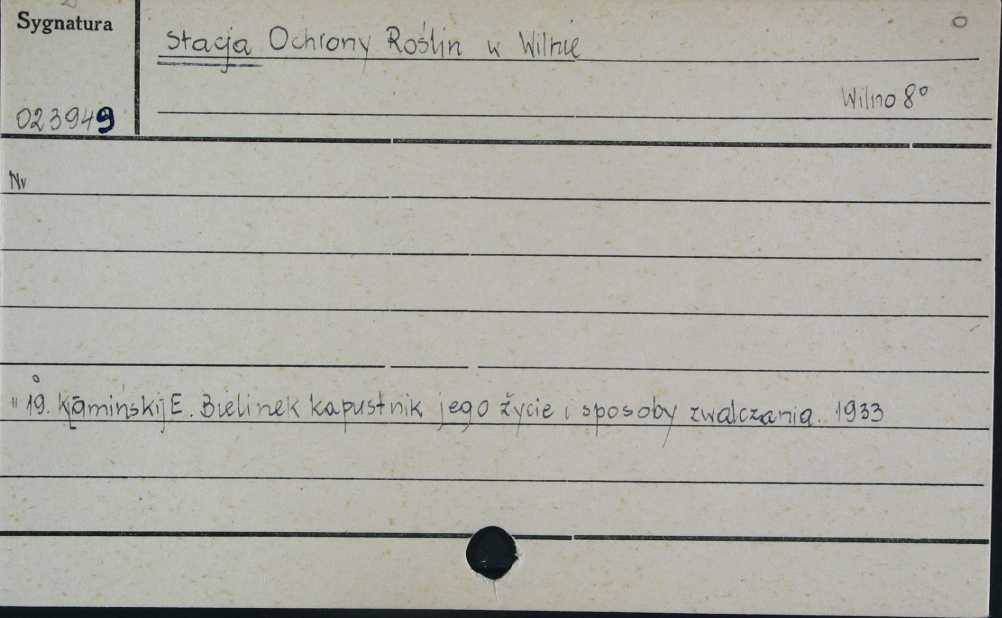 Sygnatura
Stacja Ochrony Roślin w Wilnie
Wilno 8°
023949
Nr
" 19. Kamiński E. Bielinek kapustnik jego życie i sposoby zwalczania. 1933